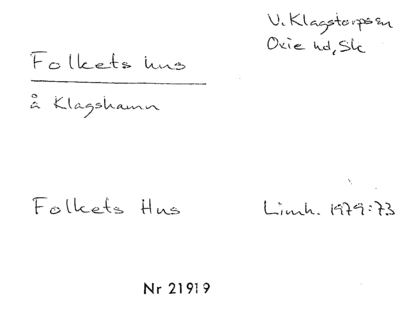 V. Klagstorps sn
Oxie hd, Sk
Folkets hus
å Klagshamn
Folkets Hus Limh. 1979:73
Nr 21919